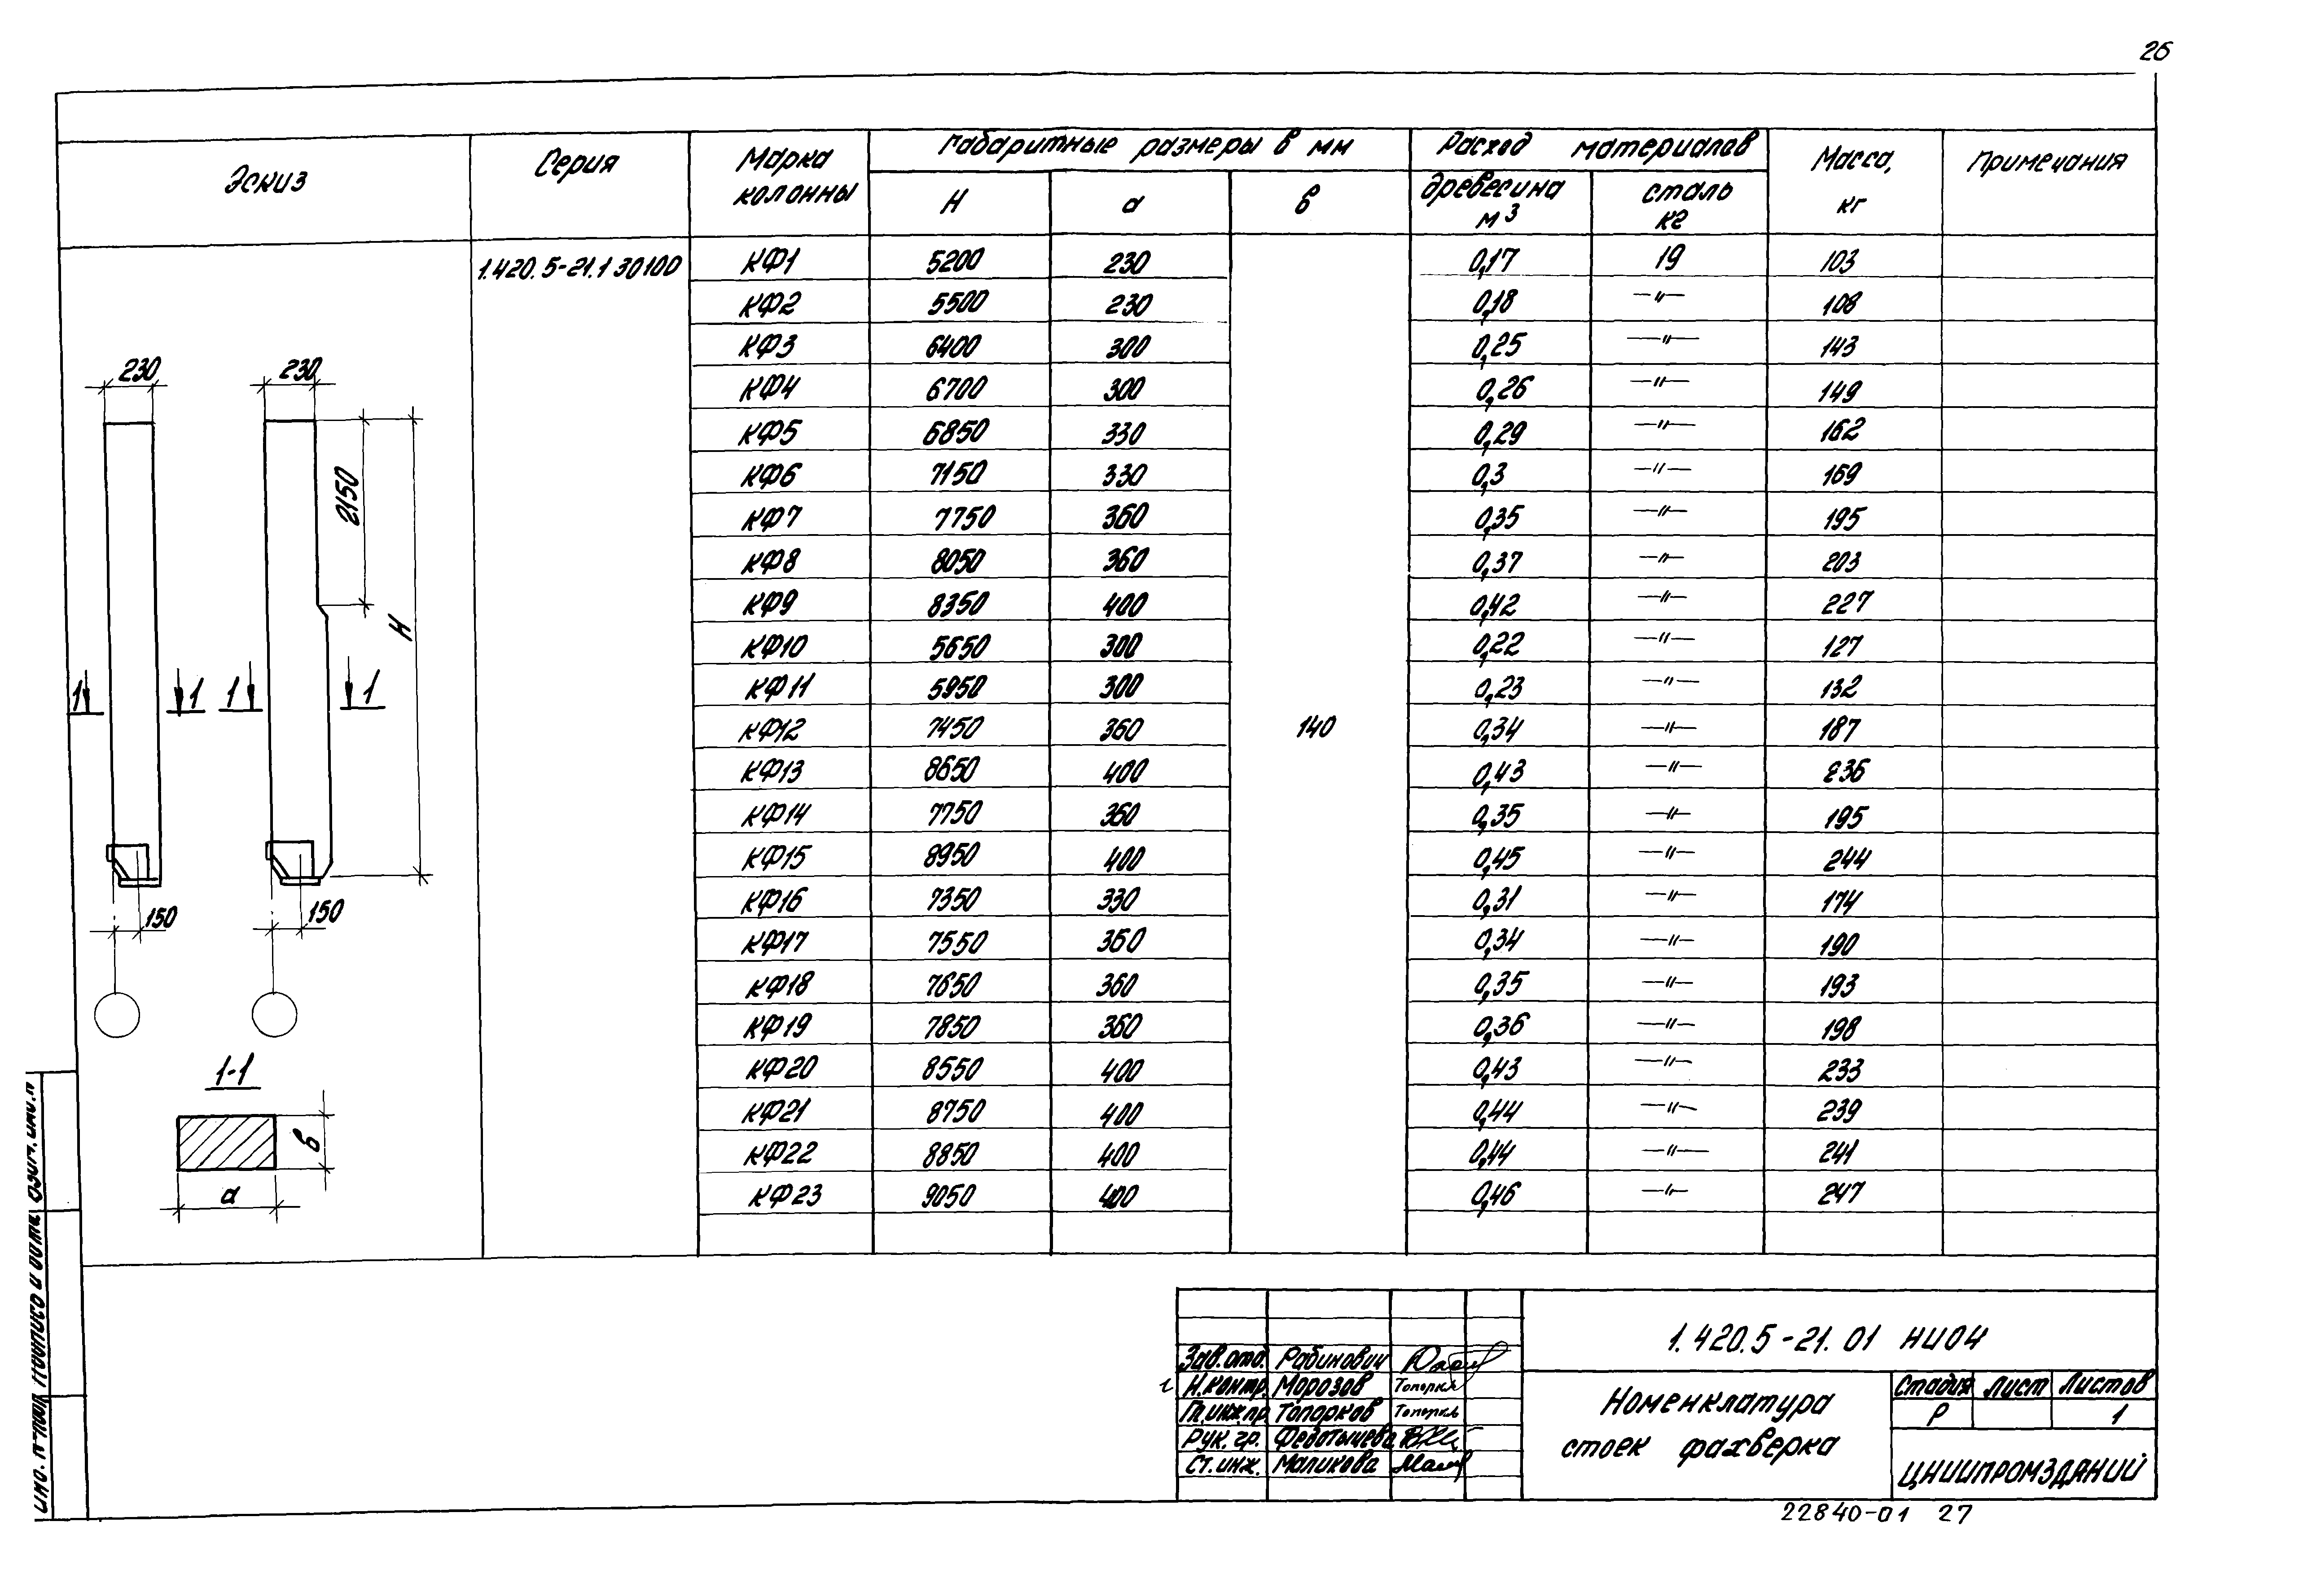 26
Эскиз
Серия
Марка колонны
Габаритные размеры в мм
Расход материалов
Масса, кг
Примечания
H
а
в
древесина м³
сталь кг
1.420.5-21.1 30100
КФ1 5200 230 0,17 19 103
КФ2 5500 230 0,18 —"— 108
КФ3 6400 300 0,25 —"— 143
КФ4 6700 300 0,26 —"— 149
КФ5 6850 330 0,29 —"— 162
КФ6 7150 330 0,3 —"— 169
КФ7 7750 360 0,35 —"— 195
КФ8 8050 360 0,37 —"— 203
КФ9 8350 400 0,42 —"— 227
КФ10 5650 300 0,22 —"— 127
КФ11 5950 300 0,23 —"— 132
КФ12 7450 360 140 0,34 —"— 187
КФ13 8650 400 0,43 —"— 236
КФ14 7750 360 0,35 —"— 195
КФ15 8950 400 0,45 —"— 244
КФ16 7350 330 0,31 —"— 174
КФ17 7550 360 0,34 —"— 190
КФ18 7650 360 0,35 —"— 193
КФ19 7850 360 0,36 —"— 198
КФ20 8550 400 0,43 —"— 233
КФ21 8750 400 0,44 —"— 239
КФ22 8850 400 0,44 —"— 241
КФ23 9050 400 0,46 —"— 247
230 230
2150
H
1 1 1 1
150 150
1-1
в
а
Взам. инв. №
Подпись и дата
Инв. № подл.
1.420.5-21.01 НИ04
Зав. отд. Рабинович
Н. контр. Морозов
Гл. инж. пр. Топорков
Рук. гр. Федотычева
Ст. инж. Маликова
Номенклатура
стоек фахверка
Стадия Лист Листов
Р 1
ЦНИИПРОМЗДАНИЙ
22840-01 27